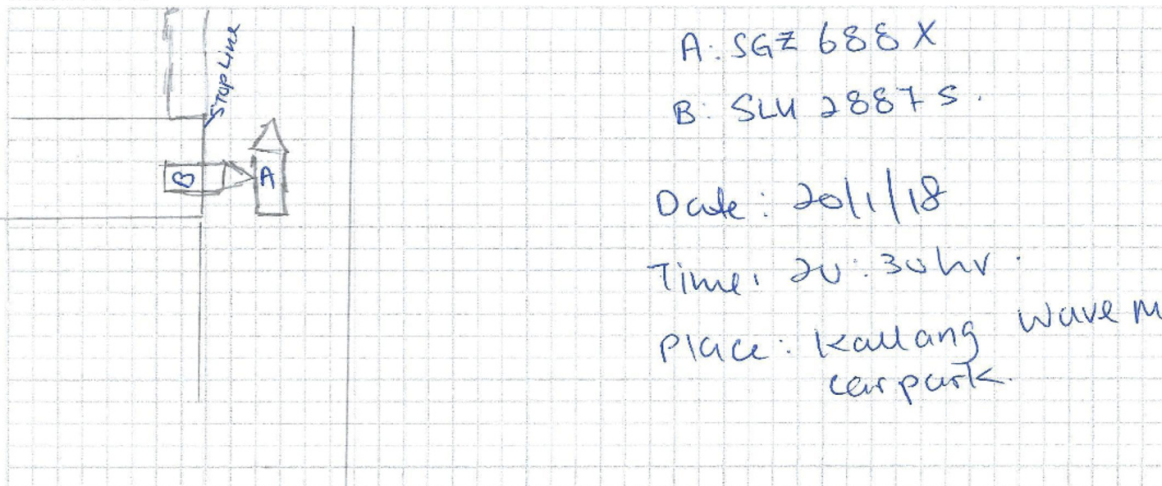 Stop Line
B
A
A: SGZ 688 X
B: SLU 2887 S.
Date: 20/1/18
Time: 20:30hr.
Place: Kallang Wave M
carpark.